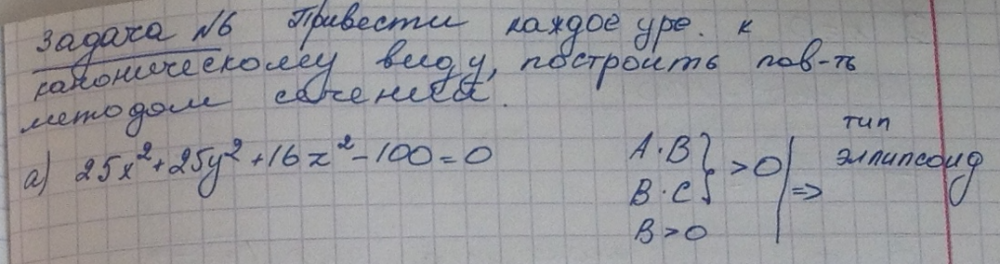 Задача №6 Привести каждое уре. к
каноническому виду, построить пов-ть
методом сечения.
а) 25x² + 25y² + 16z² - 100 = 0
A·B
B·C } > 0 | =>
B > 0
тип
эллипсоид